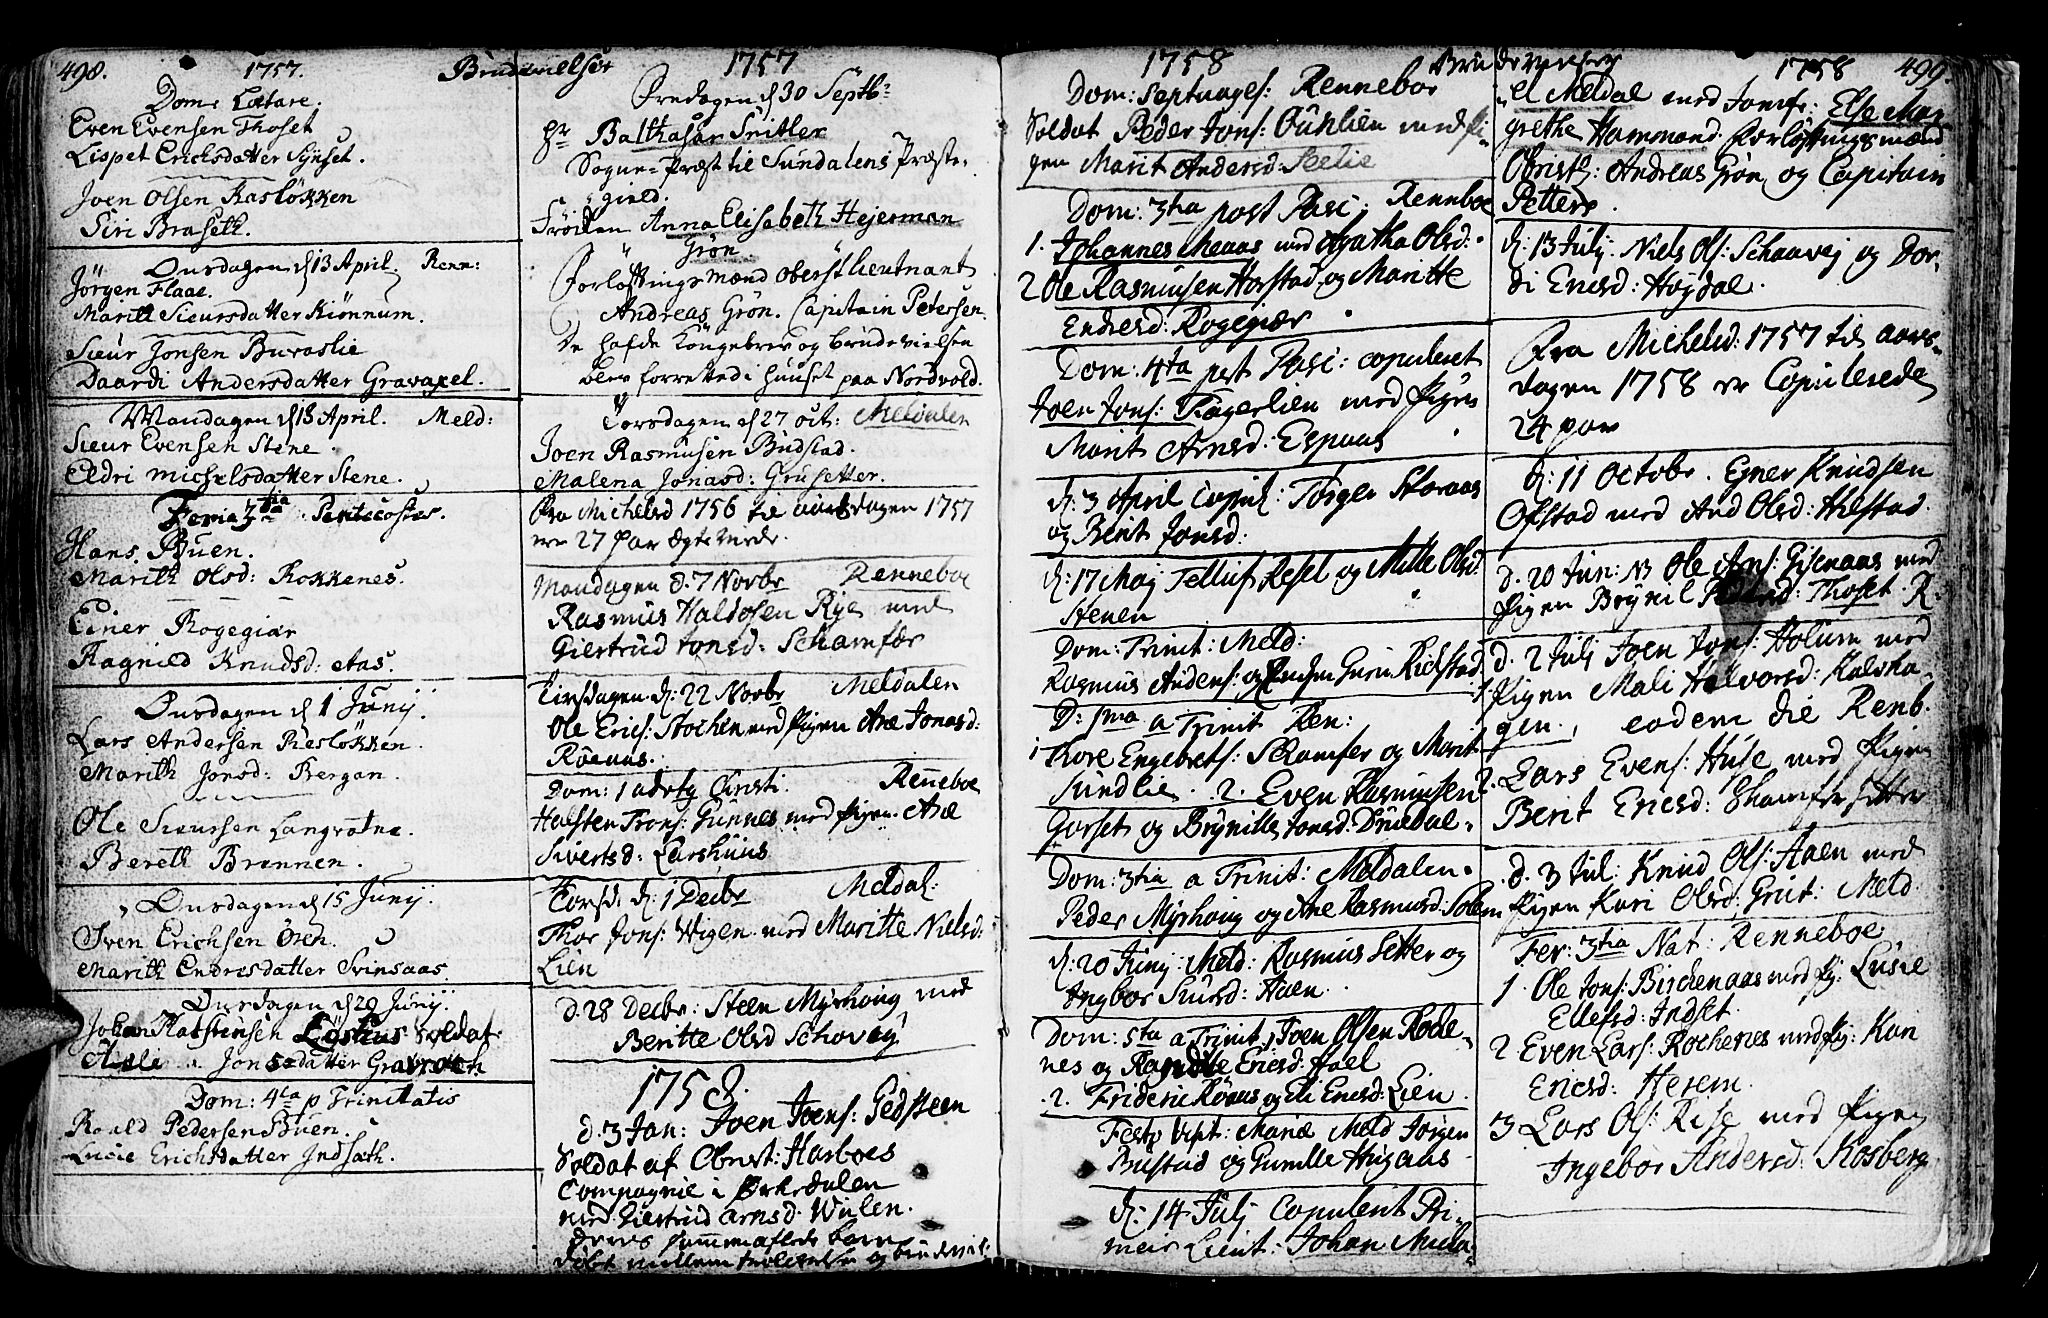 498. 1757. Brudevielser 1757
Dom: Lætare.
Even Evensen Thoset
Lispet Erichsdatter Synset.
Joen Olsen Rasløkken
Siri Braseth.
Onsdagen d 13 April. Renn:
Jörgen Flaae.
Marith Siursdatter Kiönnum.
Siur Jonsen Buraslie
Daardi Andersdatter Gravaxel.
Mandagen d 18 April. Meld:
Siur Evensen Stene
Eldri Michelsdatter Stene.
Feria 3tia Pentecostes.
Hans Buen.
Marith Olsd: Rokkenes.
Einer Rogegiær
Ragnild Knudsd: Aas.
Onsdagen d 1 Junij.
Lars Andersen Resløkken.
Marith Jonsd: Bergan.
Ole Siurssen Langrötne.
Bereth Brennen.
Onsdagen d 15 Junij.
Sven Erichsen Ören.
Marith Endresdatter Svinsaas.
Onsdagen d 29 Junij.
Johan Soldat
Jonsdatter
Dom: 4ta p Trinitatis
Roald Pedersen Buen.
Lucie Erichsdatter Indsæth.
Fredagen d 30 Septb:
Hr Balthasar Snitler
Sogne-Præst til Sundalens Præste-
gield.
Fröiken Anna Elisabeth Hejerman
Grön
Forløftnings Mænd Oberstlieutnant
Andreas Grön. Capitain Petersen.
De hafde Kongebrev og Brudevielsen
blev forretted i Huuset paa Nordvold.
Torsdagen d 27 Oct: Meldalen
Joen Rasmusen Budstad.
Malena Jonasd: Grusetter.
Fra Michelsd 1756 til aarsdagen 1757
ere 27 par ægteviede.
Mandagen d. 7 Novbr Renneboe
Rasmus Haldosen Rye med
Giertrud Jonsd: Schamfær
Tirsdagen d: 22 Novbr Meldalen
Ole Erics: Stochen med Pigen Ane Jonasd:
Röeaas.
Dom: 1 adv: Christi. Renneboe
Halsten Trons: Gunnes med Pigen Ane
Sivertsd: Larshuus
Torsd. d: 1 Decbr Meldal:
Thor Jons: Wigen med Maritte Nielsd:
Lien
d. 28 Decbr: Steen Myrhoug med
Beritte Olsd Schovey
1758.
d. 3 Jan: Joen Joens: Gedsteen
Soldat af Obrist: Harboes
Compagnie i Örkedalen
med Giertrud Arnsd. Wulen.
deres sammenaflede barn
døbt mellem trolovelse og
1758 Brudevielser 1758 499.
Dom: Septuages: Renneboe
Soldat Peder Jons: Ouhlien med Pi-
gen Marit Andersd: Selie
Dom: 3tia post Pasc: Renneboe
1. Johannes Meaas med Agatha Olsd:
2 Ole Rasmusen Horstad, og Maritte
Endresd: Rogegiær
Dom: 4ta post Pasc: copuleret
Joen Jons: Fagerlien med Pigen
Marit Arnsd: Espaas
d: 3 April Copul: Törger Storaas
og Berit Jonsd:
d: 17 Maj Tellus Resel og Mille Olsd
Stenen
Dom: Trinit: Meld:
Rasmus Anders: og Gurri Rickstad
D: 1ma a Trinit Ren:
1 Thore Engebrets: Skamfer og Marit
Sundlie. 2. Even Rasmusen
Gorset og Brynille Jonsd: Drucdal.
Dom: 3tia a Trinit: Meldalen.
Peder Myrhoug og Ane Rasmusd: Solem
d: 20 Junij: Meld: Rasmus Setter og
Ingbor Siursd: Aaen.
Dom: 5ta a Trinit, 1 Joen Olsen Rode-
nes og Ragnille Ericsd: Hoel
2. Frideric Röeaas og Eli Ericsd: Lien.
Festo Visit: Mariæ Meld Jörgen
Bustad og Gunille Hugaas
d: 14 Julij Copuleret Pri-
meir Lieut: Johan Micha-
el Meldal med Jomfr: Else Mar-
grethe Hammond. Forløftningsmænd
Obristl: Andreas Grön og Capitain
Petters.
d: 13 Julij Niels Ols: Schaavej og Dor-
di Ericsd: Høgdal.
Fra Michelsd: 1757 til aars-
dagen 1758 er Copulerede
24 par
d: 11 October. Ejner Knudsen
Ofstad med And Olsd: Hilstad.
d. 20 Jun: NB Ole Ans: Gisenaas med
Pigen Brynil Thoset. R.
d. 2 Julij Joen Jons: Holum med
1. Pigen Mali Halvorsd: Kalvha-
gen, eodem die Renb.
2. Lars Evens: Huse med Pigen
Berit Ericsd: Skamfersetter
d. 3 Jul: Knud Ols: Aaen med
Pigen Kari Olsd: Grut: Meld.
Fer: 3tia Nat: Renneboe
1. Ole Jons: Birchenaas med Pj: Lusie
Ellefsd: Indset.
2 Even Lars: Rochenes med Pj: Kari
Ericsd: Herem.
3 Lars Ols: Rise med Pigen
Ingebor Andersd: Rosberg